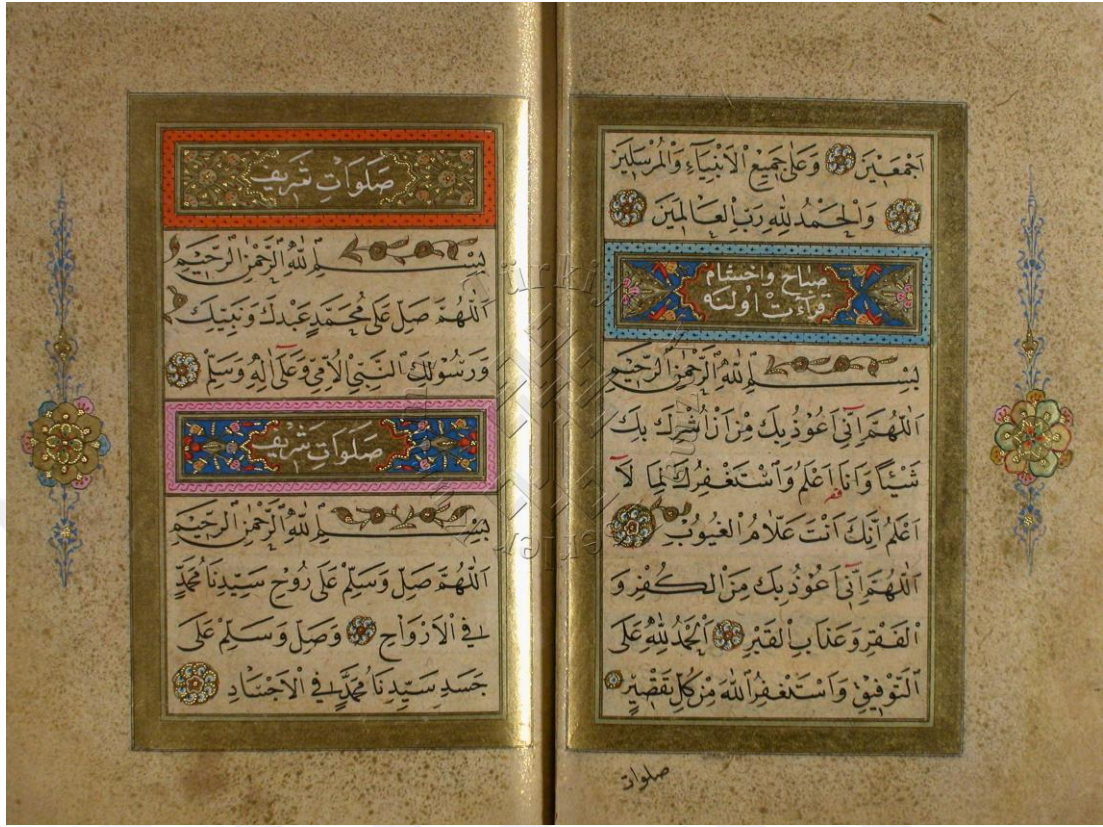 اَجْمَعِينَ وَعَلٰى جَمِيعِ الْاَنْبِيَاءِ وَالْمُرْسَلِينَ
وَالْحَمْدُ لِلّٰهِ رَبِّ الْعَالَمِينَ
صباح واخشام
قرائت اولنه
بِسْمِ اللّٰهِ الرَّحْمٰنِ الرَّحِيمِ
اَللّٰهُمَّ اِنِّي اَعُوذُ بِكَ مِنْ اَنْ اُشْرِكَ بِكَ
شَيْئًا وَاَنَا اَعْلَمُ وَاَسْتَغْفِرُكَ لِمَا لَا
اَعْلَمُ اِنَّكَ اَنْتَ عَلَّامُ الْغُيُوبِ
اَللّٰهُمَّ اِنِّي اَعُوذُ بِكَ مِنَ الْكُفْرِ وَ
الْفَقْرِ وَعَذَابِ الْقَبْرِ اَلْحَمْدُ لِلّٰهِ عَلَى
التَّوْفِيقِ وَاَسْتَغْفِرُ اللّٰهَ مِنْ كُلِّ تَقْصِيرٍ
صلوات
صَلَوَاتِ شَرِيف
بِسْمِ اللّٰهِ الرَّحْمٰنِ الرَّحِيمِ
اَللّٰهُمَّ صَلِّ عَلٰى مُحَمَّدٍ عَبْدِكَ وَنَبِيِّكَ
وَرَسُولِكَ النَّبِيِّ الْاُمِّيِّ وَعَلٰى اٰلِهِ وَسَلِّمْ
صَلَوَاتِ شَرِيف
بِسْمِ اللّٰهِ الرَّحْمٰنِ الرَّحِيمِ
اَللّٰهُمَّ صَلِّ وَسَلِّمْ عَلٰى رُوحِ سَيِّدِنَا مُحَمَّدٍ
فِي الْاَرْوَاحِ وَصَلِّ وَسَلِّمْ عَلٰى
جَسَدِ سَيِّدِنَا مُحَمَّدٍ فِي الْاَجْسَادِ